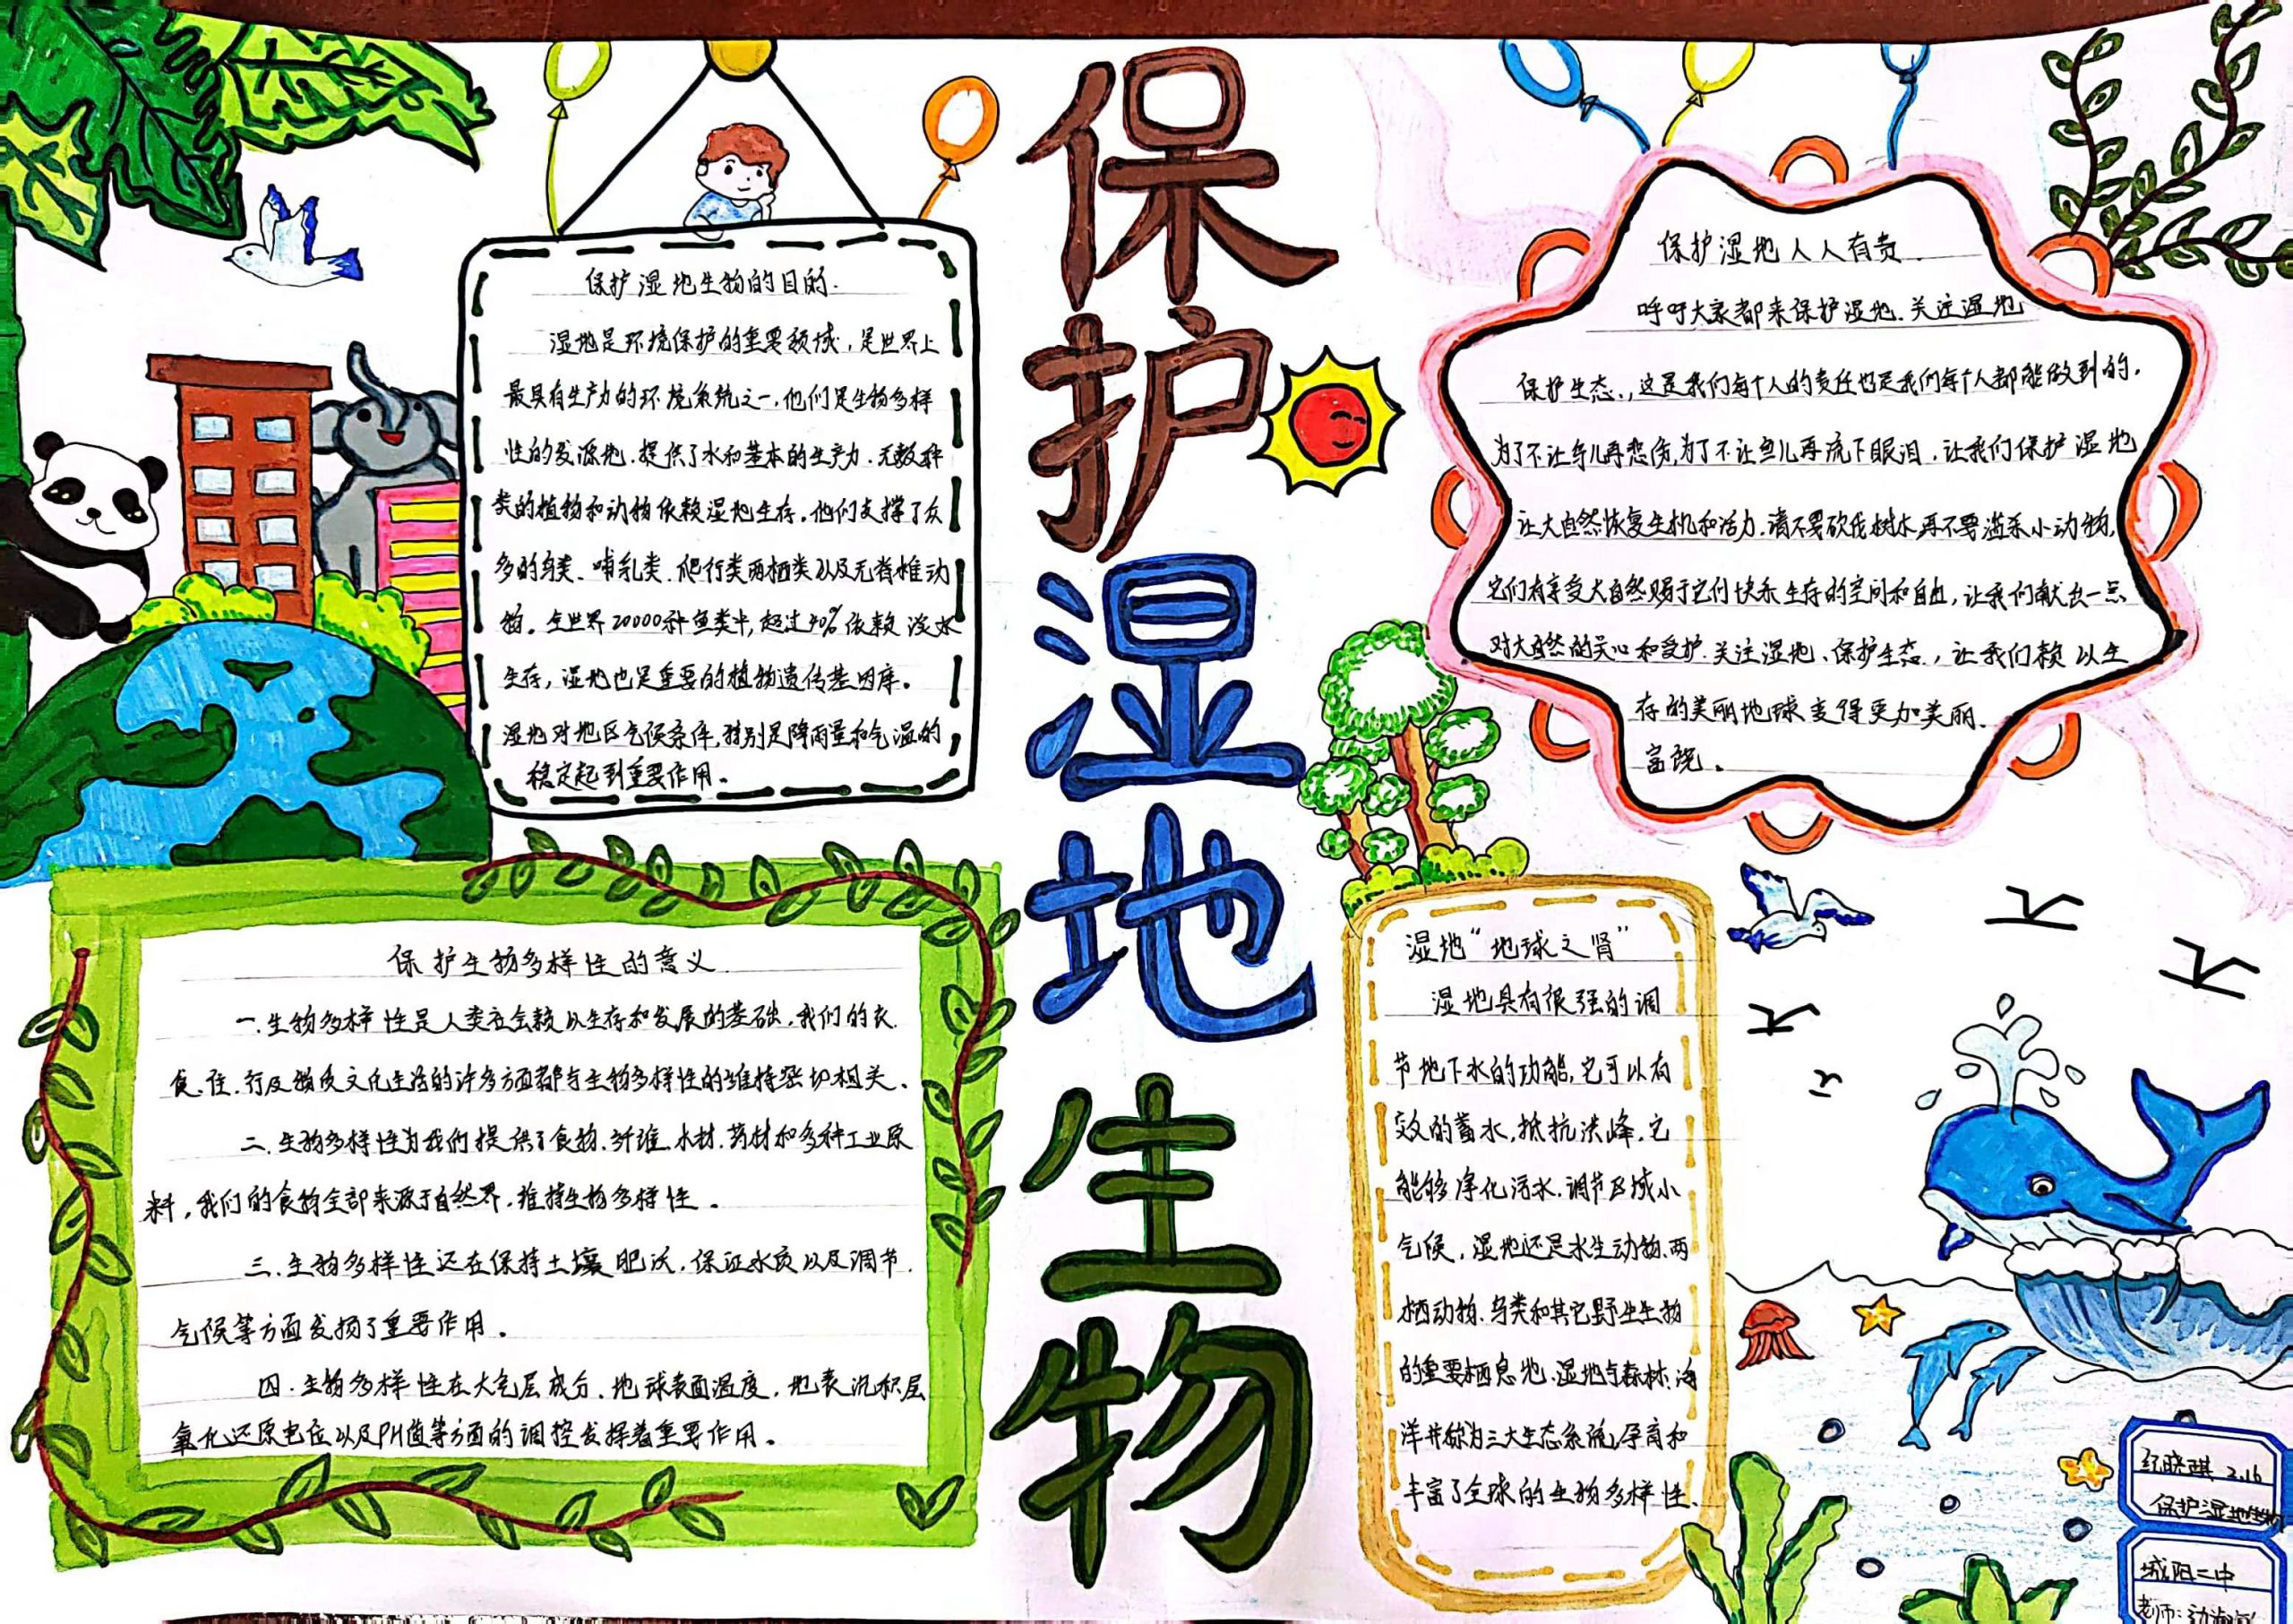 保护湿地生物
保护湿地生物的目的.
湿地是环境保护的重要领域,是世界上
最具有生产力的环境系统之一,他们是生物多样
性的发源地.提供了水和基本的生产力.无数种
类的植物和动物依赖湿地生存.他们支撑了众
多的鸟类、哺乳类.爬行类两栖类以及无脊椎动
物。全世界20000种鱼类中,超过40%依赖淡水
生存,湿地也是重要的植物遗传基因库。
湿地对地区气候条件,特别是降雨量和气温的
稳定起到重要作用。
保护生物多样性的意义.
一.生物多样性是人类社会赖以生存和发展的基础.我们的衣.
食.住.行及物质文化生活的许多方面都与生物多样性的维持密切相关、
二.生物多样性为我们提供了食物.纤维.木材.药材和多种工业原
料,我们的食物全部来源于自然界.维持生物多样性。
三.生物多样性还在保持土壤肥沃.保证水质以及调节.
气候等方面发扬了重要作用。
四.生物多样性在大气层成分.地球表面温度,地表沉积层
氧化还原电位以及PH值等方面的调控发挥着重要作用。
保护湿地人人有责.
呼吁大家都来保护湿地.关注湿地
保护生态.,这是我们每个人的责任也是我们每个人都能做到的.
为了不让鸟儿再悲伤,为了不让鱼儿再流下眼泪.让我们保护湿地
让大自然恢复生机和活力.请不要砍伐树木再不要滥杀小动物,
它们有享受大自然赐于它们快乐生存的空间和自由,让我们献出一点
对大自然的关心和爱护.关注湿地、保护生态.,让我们赖以生
存的美丽地球变得更加美丽.
富饶。
湿地“地球之肾”
湿地具有很强的调
节地下水的功能,它可以有
效的蓄水,抵抗洪峰,它
能够净化污水.调节区域小
气候,湿地还是水生动物、两
栖动物.鸟类和其它野生生物
的重要栖息地.湿地与森林:海
洋并称为三大生态系统,孕育和
丰富了全球的生物多样性、
纪晓琪 2.16
保护湿地生物
城阳二中
老师: